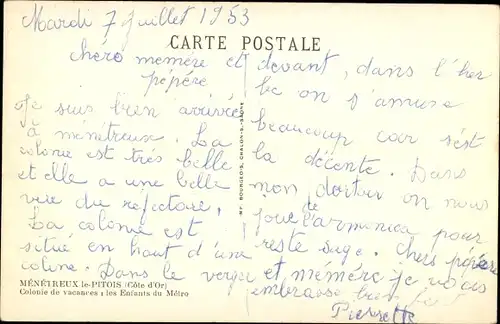 Mardi 7 juillet 1953
CARTE POSTALE
chére memére et
pépére
Je suis bien arrivée
à ménitreux. La
colonie est trés belle
et elle a une belle
vue du refectoire,
La colonie est
situé en haut d'une
coline. Dans le verger
devant, dans l'her
be on s'amuse
beaucoup car s'est
la décente. Dans
mon dortoir on nous
joue de l'armonica pour
reste sage. Chers pépére
et memére je vous
embrasse bien fort
Pierrette
IMP. BOURGEOIS, CHALON-S-SAONE
MÉNÉTREUX-le-PITOIS (Côte d'Or)
Colonie de vacances ; les Enfants du Métro